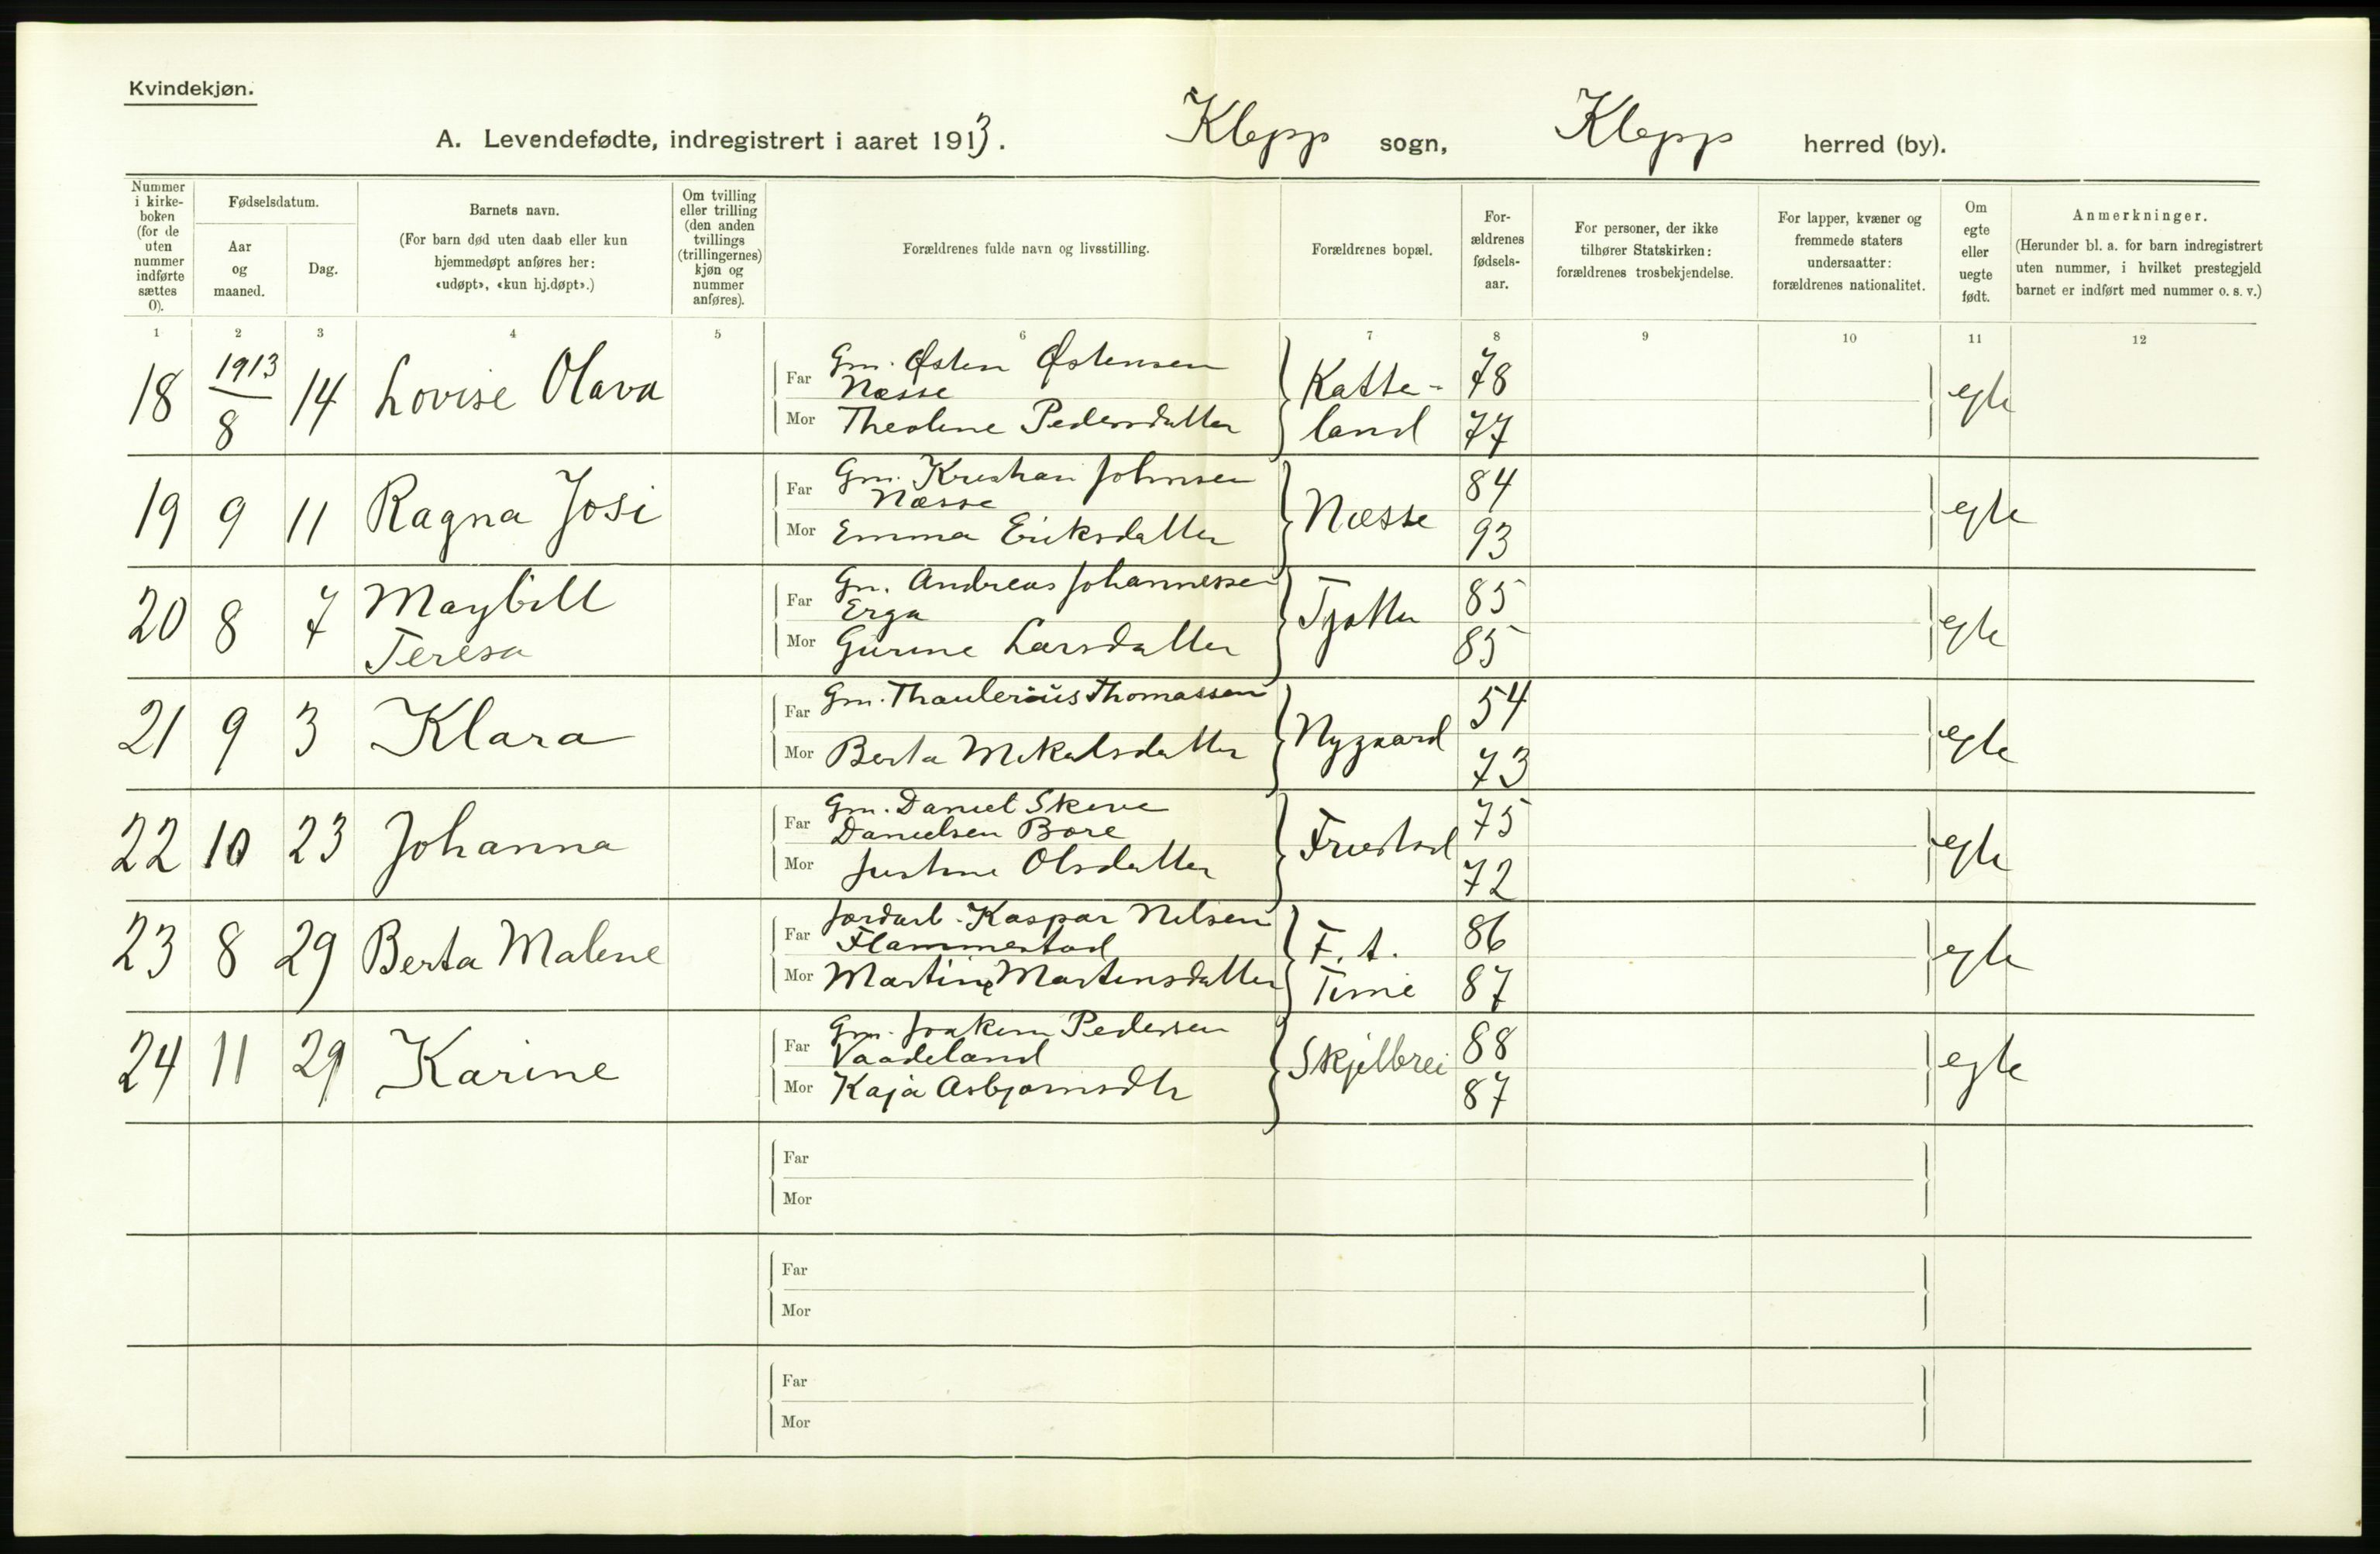 Kvindekjøn.
A. Levendefødte, indregistrert i aaret 1913. Klepp sogn, Klepp herred (by).
Nummer i kirke-boken (for de uten nummer indførte sættes 0).
Fødselsdatum.
Aar og maaned.
Dag.
Barnets navn.
(For barn død uten daab eller kun hjemmedøpt anføres her: «udøpt», «kun hj.døpt».)
Om tvilling eller trilling (den anden tvillings (trillingernes) kjøn og nummer anføres).
Forældrenes fulde navn og livsstilling.
Forældrenes bopæl.
For-ældrenes fødsels-aar.
For personer, der ikke tilhører Statskirken: forældrenes trosbekjendelse.
For lapper, kvæner og fremmede staters undersaatter: forældrenes nationalitet.
Om egte eller uegte født.
Anmerkninger.
(Herunder bl. a. for barn indregistrert uten nummer, i hvilket prestegjeld barnet er indført med nummer o. s. v.)
1 2 3 4 5 6 7 8 9 10 11 12
18 1913 8 14 Lovise Olava
Far Gm. Østen Østensen Næsse
Mor Theoline Pedersdatter
Katteland 78 77 egte
19 9 11 Ragna Josi
Far Gm. Kristian Johnsen Næsse
Mor Emma Eriksdatter
Næsse 84 93 egte
20 8 7 Maybill Teresa
Far Gm. Andreas Johannessen Erga
Mor Gurine Larsdatter
Tjøtta 85 85 egte
21 9 3 Klara
Far Gm. Thaulerius Thomassen
Mor Berta Mikalsdatter
Nygaard 54 73 egte
22 10 23 Johanna
Far Gm. Daniel Skeve Danielsen Bore
Mor Justine Olsdatter
Friestad 75 72 egte
23 8 29 Berta Malene
Far Jordarb. Kaspar Nilsen Flammestad
Mor Martine Martensdatter
F. t. Time 86 87 egte
24 11 29 Karine
Far Gm. Joakim Pedersen Vaadeland
Mor Kaja Asbjørnsdtr
Skjelbrei 88 87 egte
Far
Mor
Far
Mor
Far
Mor